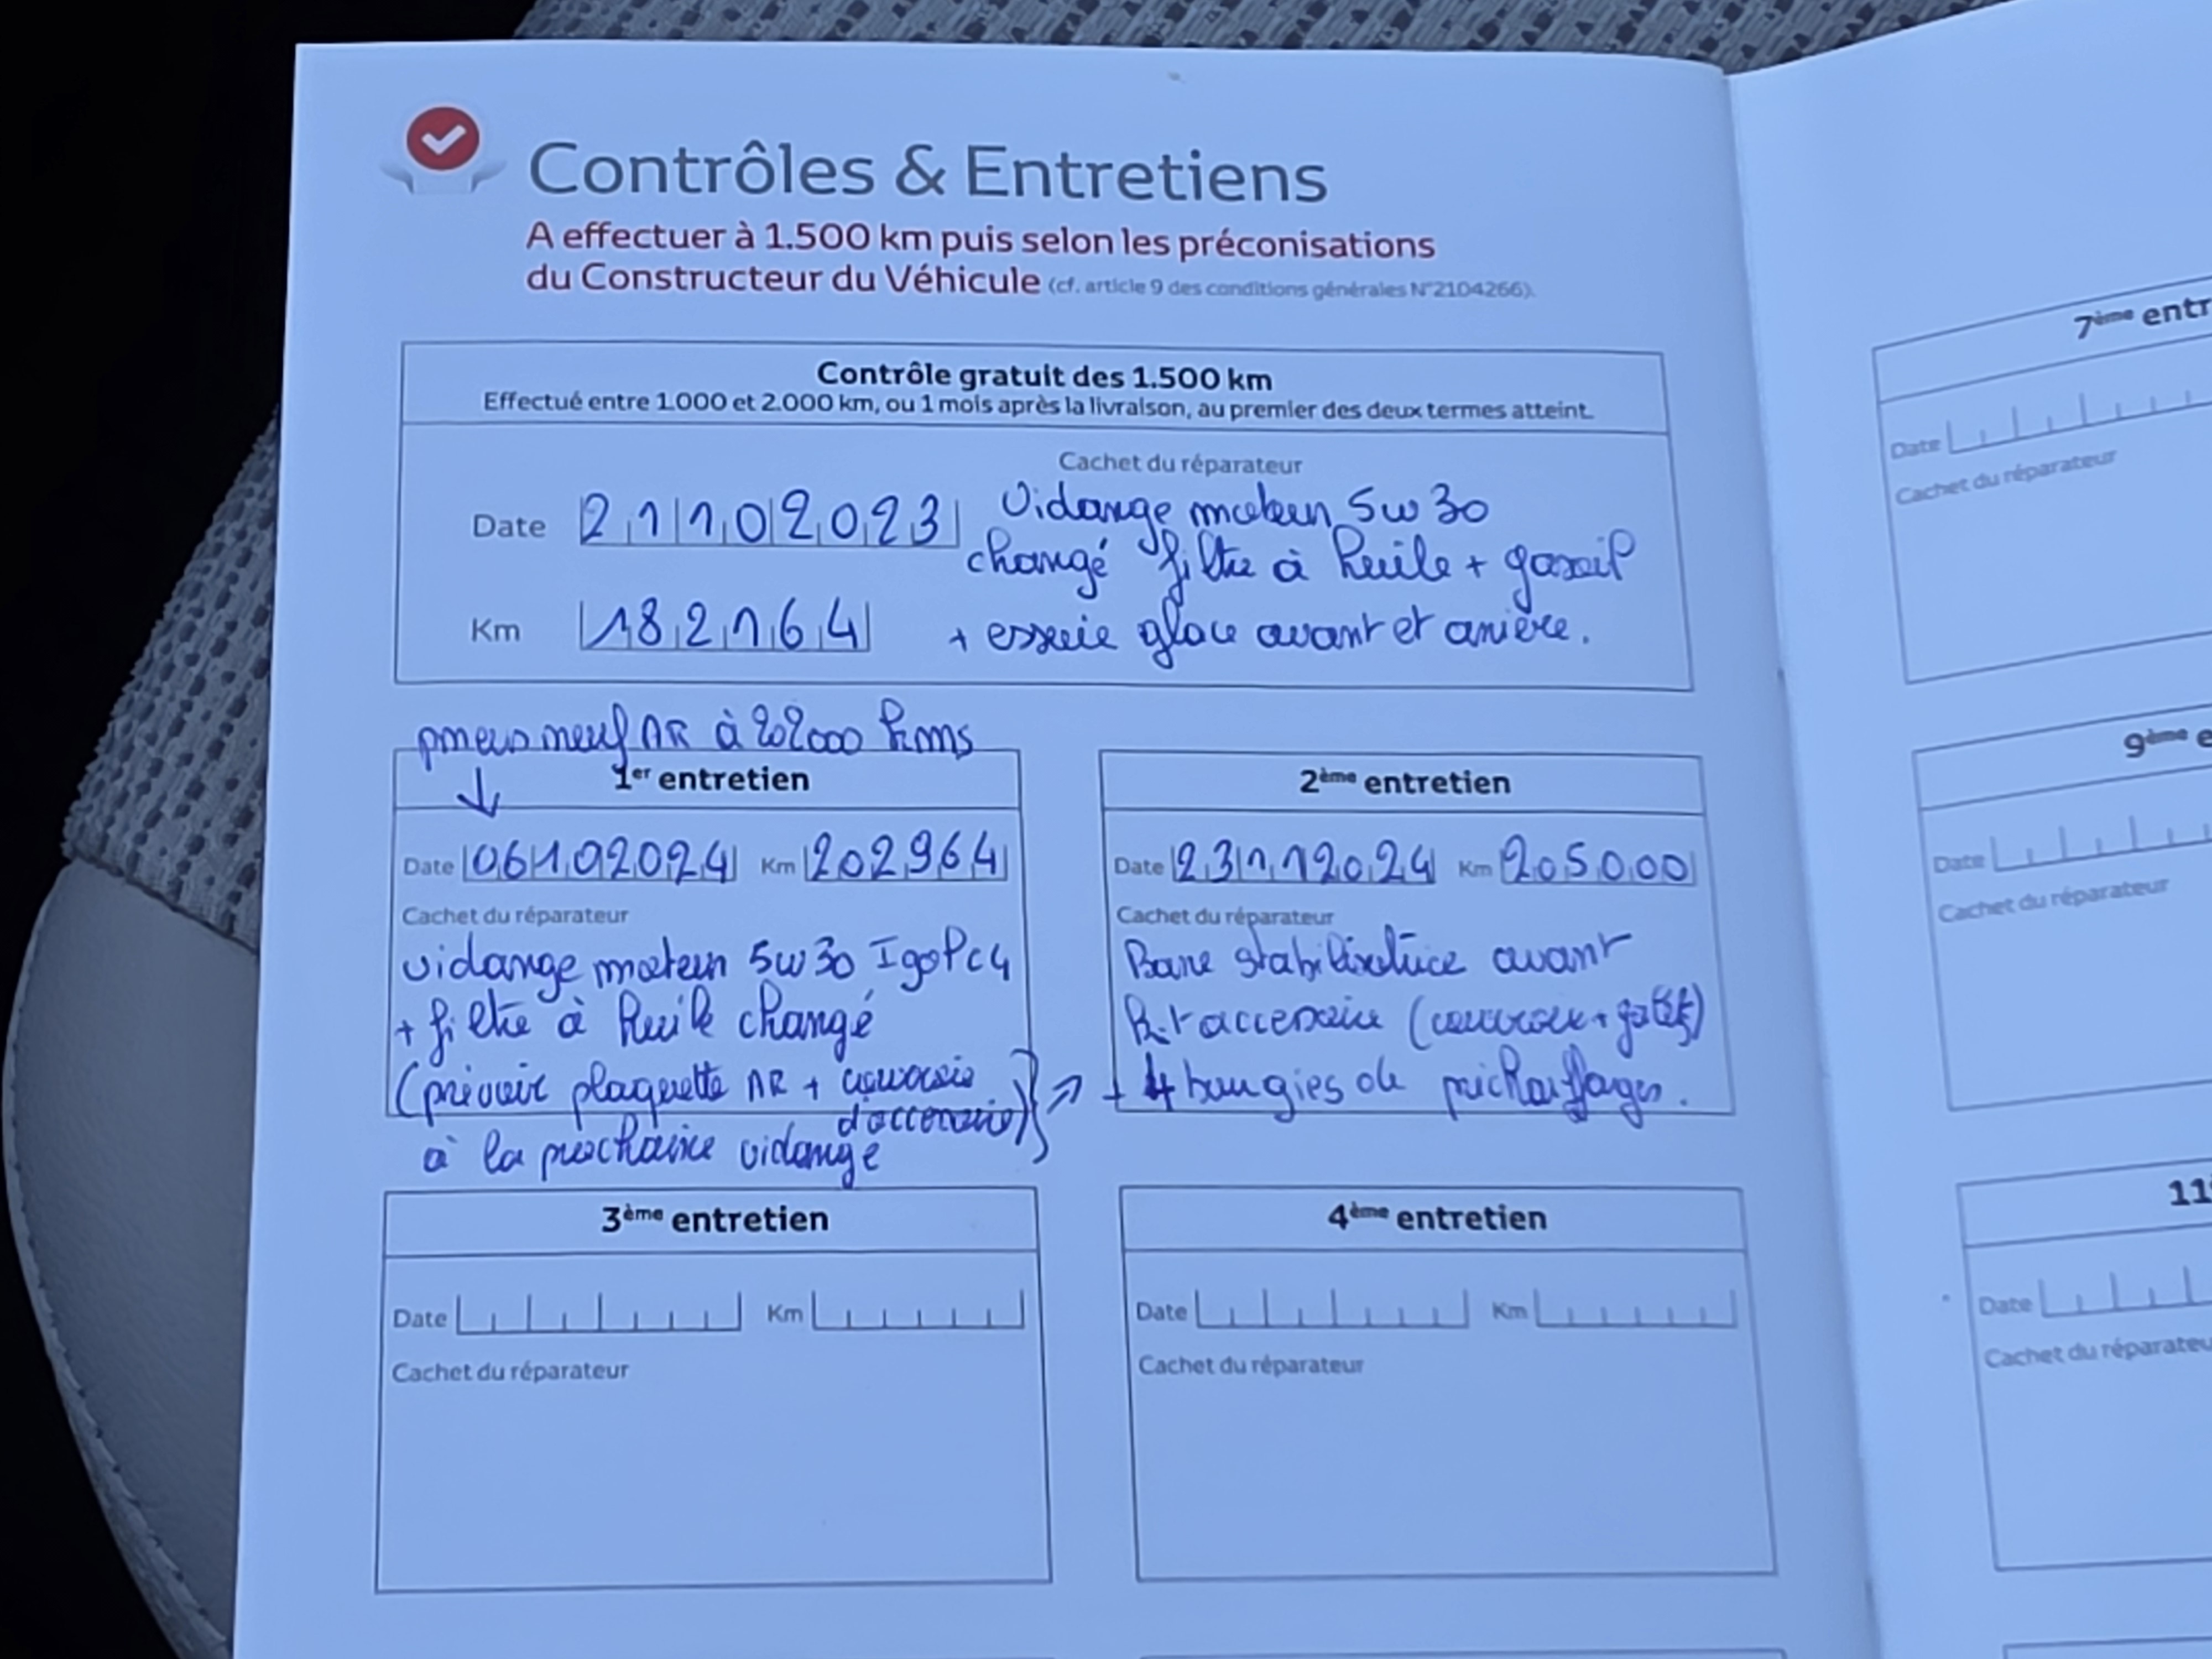 Contrôles & Entretiens
A effectuer à 1.500 km puis selon les préconisations
du Constructeur du Véhicule (cf. article 9 des conditions générales N°2104266).
Contrôle gratuit des 1.500 km
Effectué entre 1.000 et 2.000 km, ou 1 mois après la livraison, au premier des deux termes atteint.
Cachet du réparateur
Date 21102023 Vidange moteur 5w30
changé filtre à huile + gasoil
Km 182164 + essuie glace avant et arrière.
pneus neuf AR à 202000 kms
1er entretien
Date 06102024 Km 202964
Cachet du réparateur
vidange moteur 5w30
+ filtre à huile changé
(prévoir plaquette AR + courroie
d'accessoire)
à la prochaine vidange
2ème entretien
Date 23112024 Km 205000
Cachet du réparateur
Barre stabilisatrice avant
accessoire (courroie + galet)
+ 4 bougies de préchauffages.
3ème entretien
Date Km
Cachet du réparateur
4ème entretien
Date Km
Cachet du réparateur
7ème entr
Date
Cachet du réparateur
9ème e
Date
Cachet du réparateur
11
Date
Cachet du réparateu